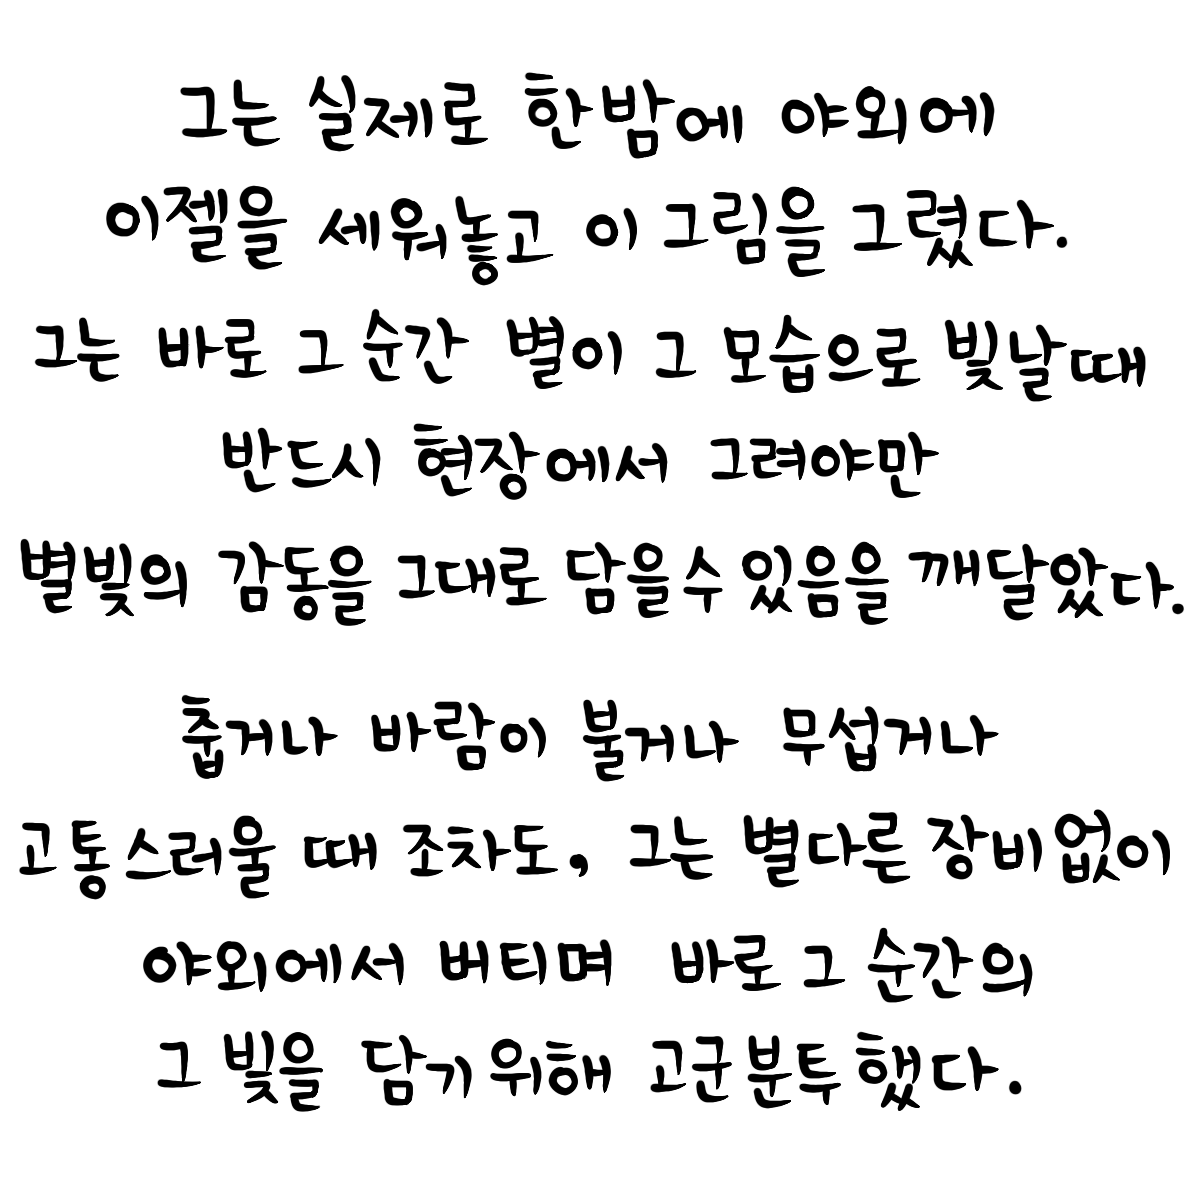 그는 실제로 한밤에 야외에
이젤을 세워놓고 이 그림을 그렸다.
그는 바로 그 순간 별이 그 모습으로 빛날때
반드시 현장에서 그려야만
별빛의 감동을 그대로 담을수 있음을 깨달았다.
춥거나 바람이 불거나 무섭거나
고통스러울 때 조차도, 그는 별다른 장비없이
야외에서 버티며 바로 그 순간의
그 빛을 담기위해 고군분투했다.